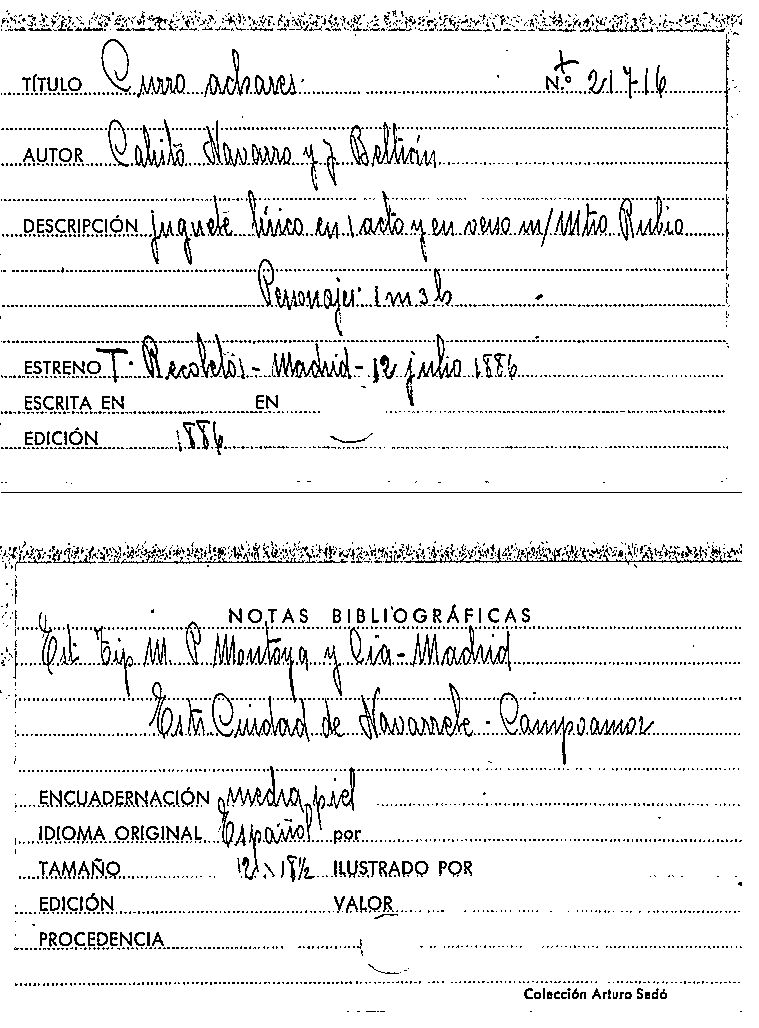 TÍTULO Curro achares. N.º 21716
AUTOR Calisto Navarro y J Beltrán
DESCRIPCIÓN juguete lírico en 1 acto y en verso m/ Mtro Rubio
Personajes: 1 m 3 h
ESTRENO T. Recoletos - Madrid - 12 julio 1886
ESCRITA EN EN
EDICIÓN 1886
NOTAS BIBLIOGRÁFICAS
Est. Tip M. P Montoya y Cia - Madrid
de Navarrete - Campoamor
ENCUADERNACIÓN media piel
IDIOMA ORIGINAL Español por
TAMAÑO 12 x 18½ ILUSTRADO POR
EDICIÓN VALOR
PROCEDENCIA
Colección Arturo Sedó